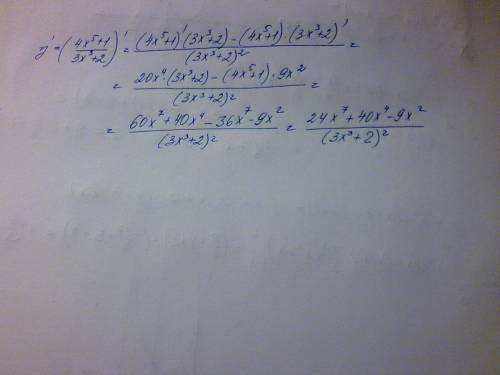 y' = (4x⁵+1 / 3x³+2)' = (4x⁵+1)'(3x³+2) − (4x⁵+1)·(3x³+2)' / (3x³+2)² =
= 20x⁴·(3x³+2) − (4x⁵+1)·9x² / (3x³+2)² =
= 60x⁷+40x⁴−36x⁷−9x² / (3x³+2)² = 24x⁷+40x⁴−9x² / (3x³+2)²